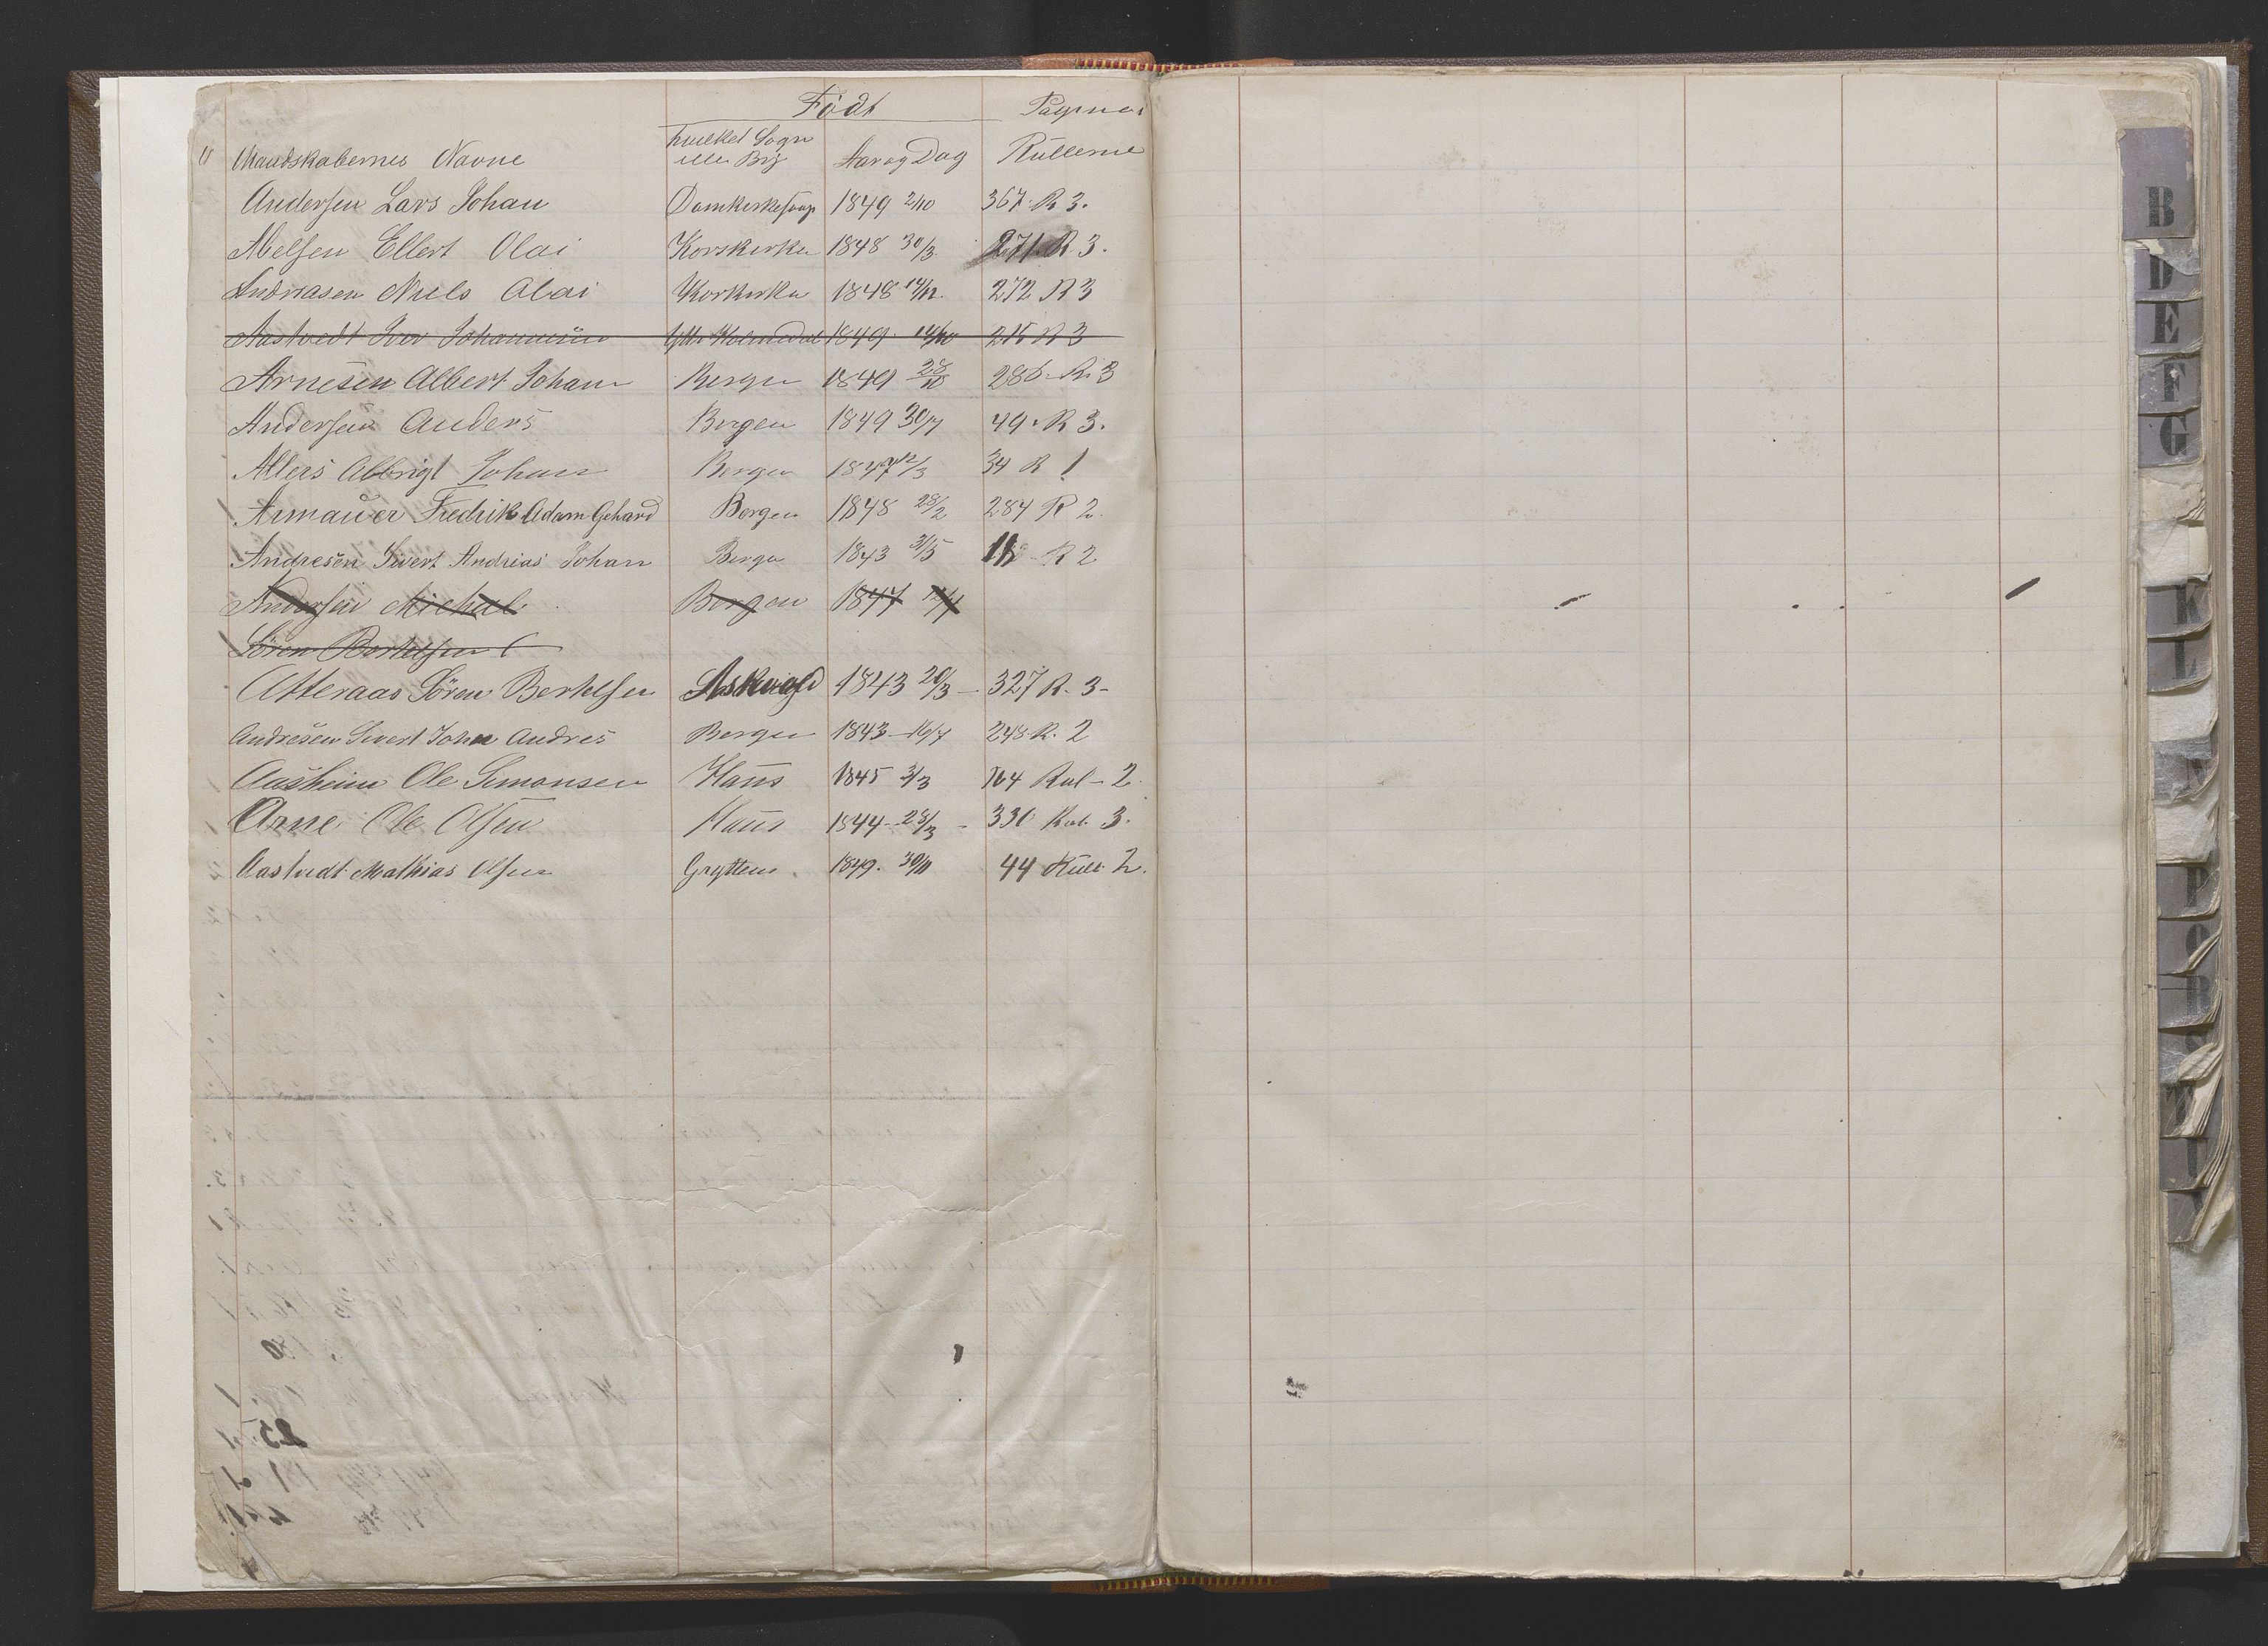 Født Pagina i
Mandskabernes Navne hvilket Sogn eller By Aar og Dag Rullerne
Andersen Lars Johan Domkirkesogn 1849 2/10 367. R 3.
Abelsen Ellert Olai Korskirke 1848 30/3 271. R 3.
Andreasen Niels Olai Korskirke 1848 14/12 272 R 3
Aastvedt Iver Johannesen 1849 14/10 R 3
Arnesen Albert Johan Bergen 1849 28/10 286 R. 3
Andersen Anders Bergen 1849 30/7 49. R 3.
Johan Bergen 12/3 34 R 1
Armauer Fredrik Adam Gehard Bergen 1848 28/2 284 R 2.
Andresen Sivert Andrias Johan Bergen 1843 3/5 R 2
Andersen Michael Bergen 1847
Sören Bertelsen
Atteraas Sören Bertelsen Askvold 1843 20/3 - 327 R. 3-
Andresen Sivert Johan Andres Bergen 1843 - 16/7 248. R. 2
Aasheim Ole Simonsen Haus 1845 3/3 164 Rul - 2.
Arne Ole Olsen Haus 1844 - 28/3 - 330 Rul. 3.
Aastvedt Mathias Olsen Grytten. 1849. 30/11 44 Rull. 2.
B
D
E
F
G
K
L
N
P
O
R
S
T